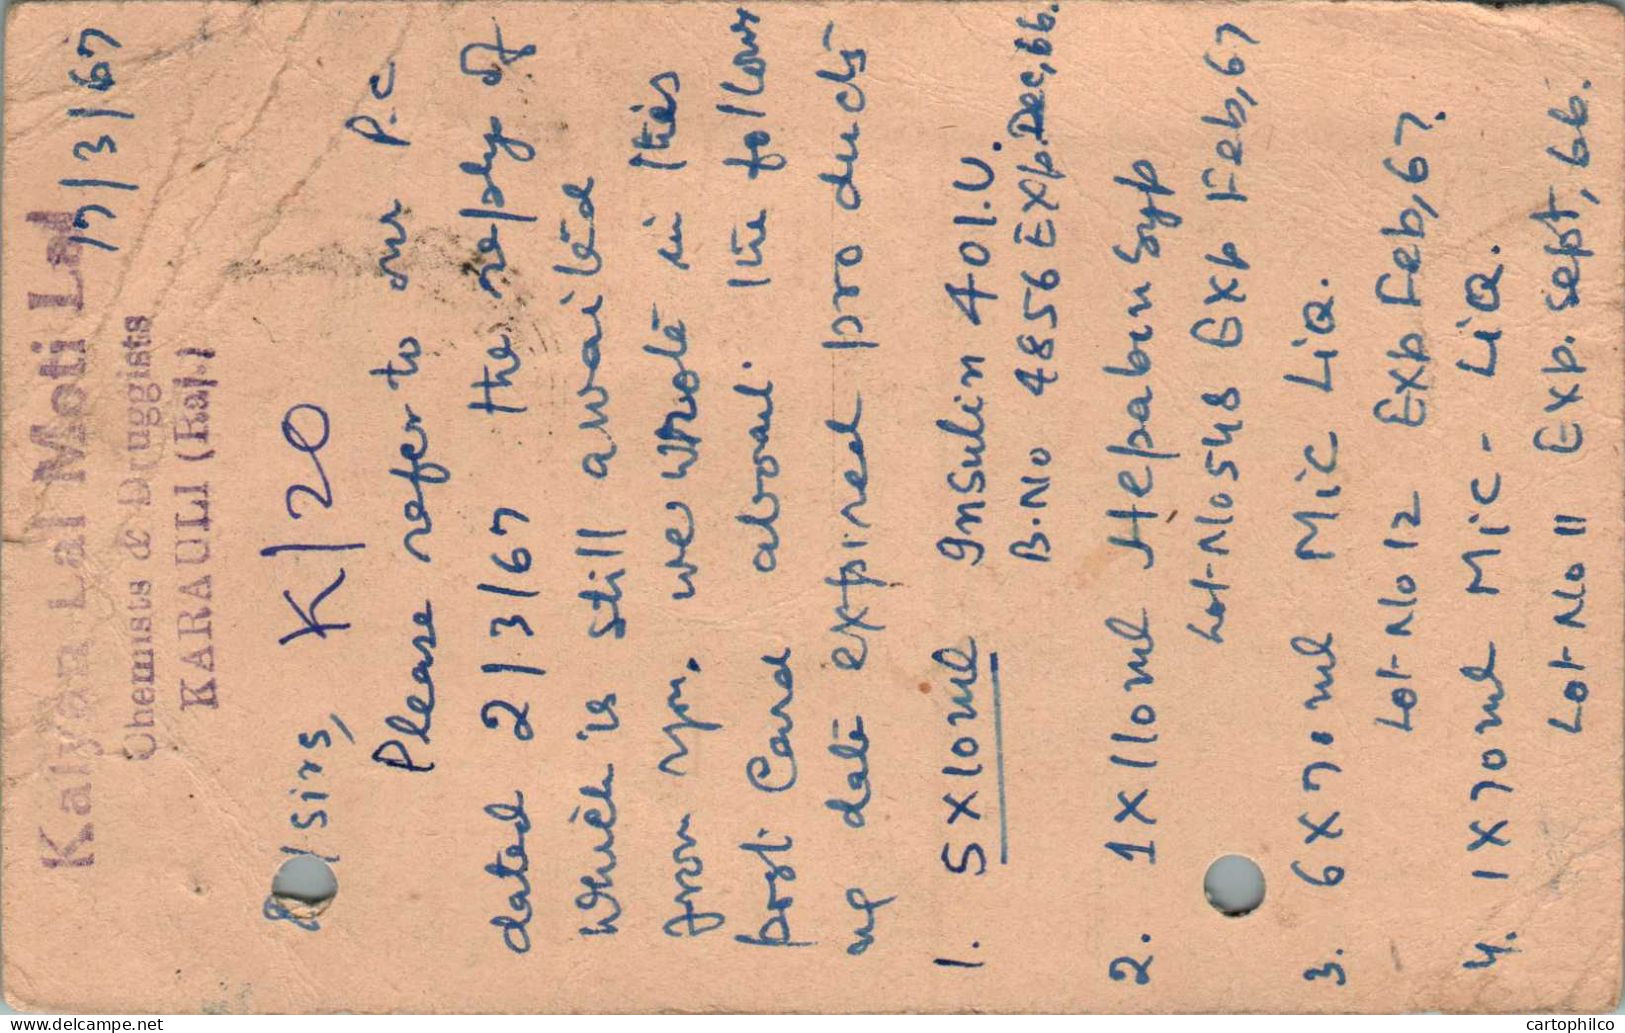 Kalyan Lal Moti Lal
Chemists & Druggists
KARAULI (Raj.)
7/3/67
D/Sirs, K/20
Please refer to our P.c
dated 2/3/67 the reply of
which is still awaited
from you. we wrote in this
post card about the follow
up date expired products
1. 5X10ml Insulin 40 I.U.
B.No 4856 Exp. Dec, 66.
2. 1X110ml Hepabin Syp
Lot-No 548 Exp Feb, 67
3. 6X70ml Mic Liq.
Lot No 12 Exp Feb, 67.
4. 1X70ml Mic- Liq.
Lot No 11 Exp. Sept, 66.
cartophilco